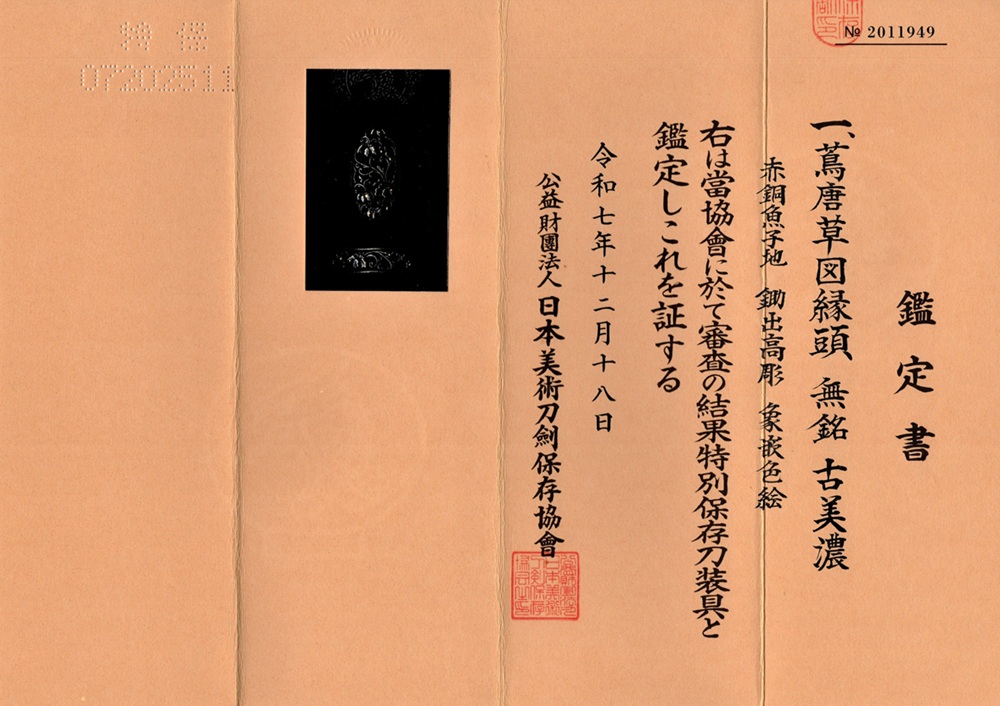 № 2011949
鑑定書
一、蔦唐草図縁頭 無銘 古美濃
赤銅魚子地 鋤出高彫 象嵌色絵
右は當協會に於て審査の結果特別保存刀装具と
鑑定しこれを証する
令和七年十二月十八日
公益財團法人 日本美術刀劍保存協會
特保
07202511